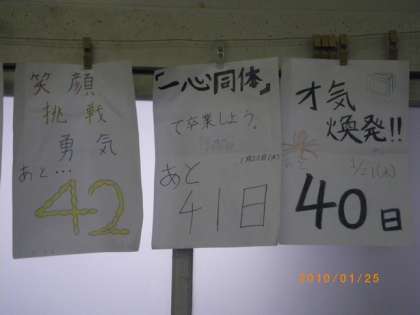 笑顔
挑戦
勇気
あと...
42
『一心同体』
で卒業しよう。
あと
41日
才気
煥発!!
40日
2010/01/25